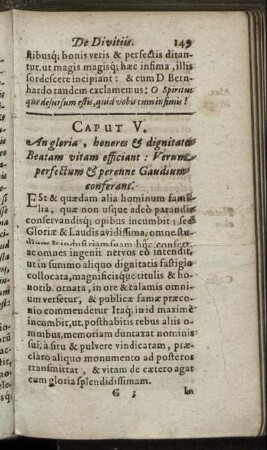 De Divitiis. 149
stibusq́; bonis veris & perfectis ditan-
tur, ut magis magisq́; hæc infima, illis
sordescere incipiant: & cum D Bern-
hardo tandem exclamemus: O Spiritus
qui desursum estis, quid vobis cum infimis!
CAPUT V.
An gloria, honores & dignitates
Beatam vitam efficiant: Verum
perfectum & perenne Gaudium
conferant.
Est & quædam alia hominum fami-
lia, quæ non usque adeò parandis
conservandisq́; opibus incumbit; sed
Gloriæ & Laudis avidissima, omne stu-
dium & industriam suam huc confert
ac omnes ingenii nervos eò intendit,
ut in summo aliquo dignitatis fastigio
collocata, magnificisque titulis & ho-
norib. ornata, in ore & calamis omni-
um versetur, & publicæ famæ præco-
nio commendetur Itaq́; in id maximè
incumbit, ut, posthabitis rebus aliis o-
mnibus, memoriam duntaxat nominis
sui, à situ & pulvere vindicatam, præ-
claro aliquo monumento ad posteros
transmittat, & vitam de cætero agat
cum gloria splendidissimam.
G 3 In